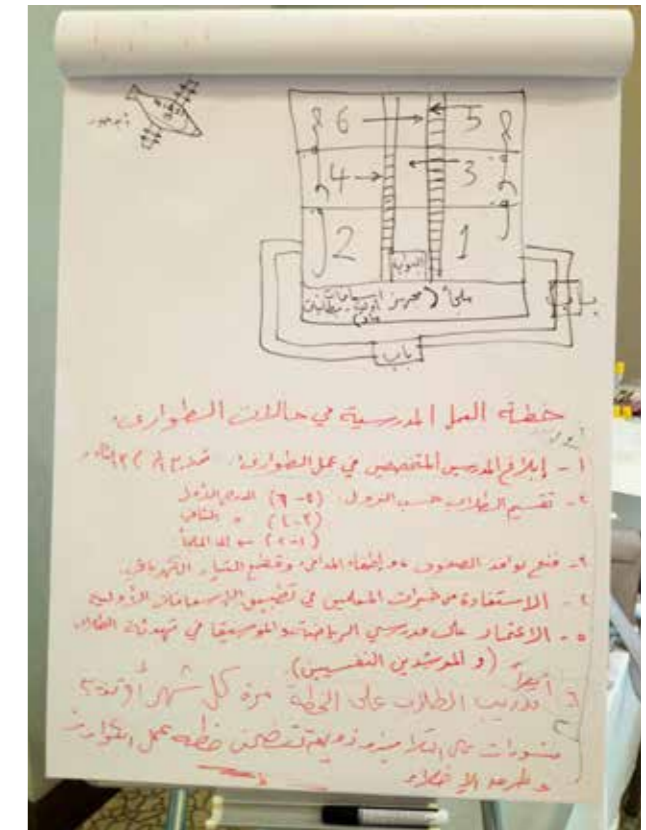 6 5
4 3
2 1
ملجأ (مجهز اسعافات
أولية - بطانيات
باب
باب
خطة العمل المدرسية في حالات الطوارئ
أولاً
١- إبلاغ المدرسين المتخصصين في عمل الطوارئ.
٢- تقسيم الطلاب حسب النزول. (٥-٦) الدرج الأول
(٣-٤) " الثاني
(١-٢) إلى الملجأ
٣- فتح نوافذ الصفوف وإطفاء المدافئ وقطع التيار الكهربائي.
٤- الاستفادة من خبرات المعلمين في تطبيق الإسعافات الأولية
٥- الاعتماد على مدرسي الرياضة والموسيقا في تهدئة الطلاب
(والمرشدين النفسيين)
تدريب الطلاب على الخطة مرة كل شهر أو
على التلاميذ تتضمن خطة عمل الطوارئ